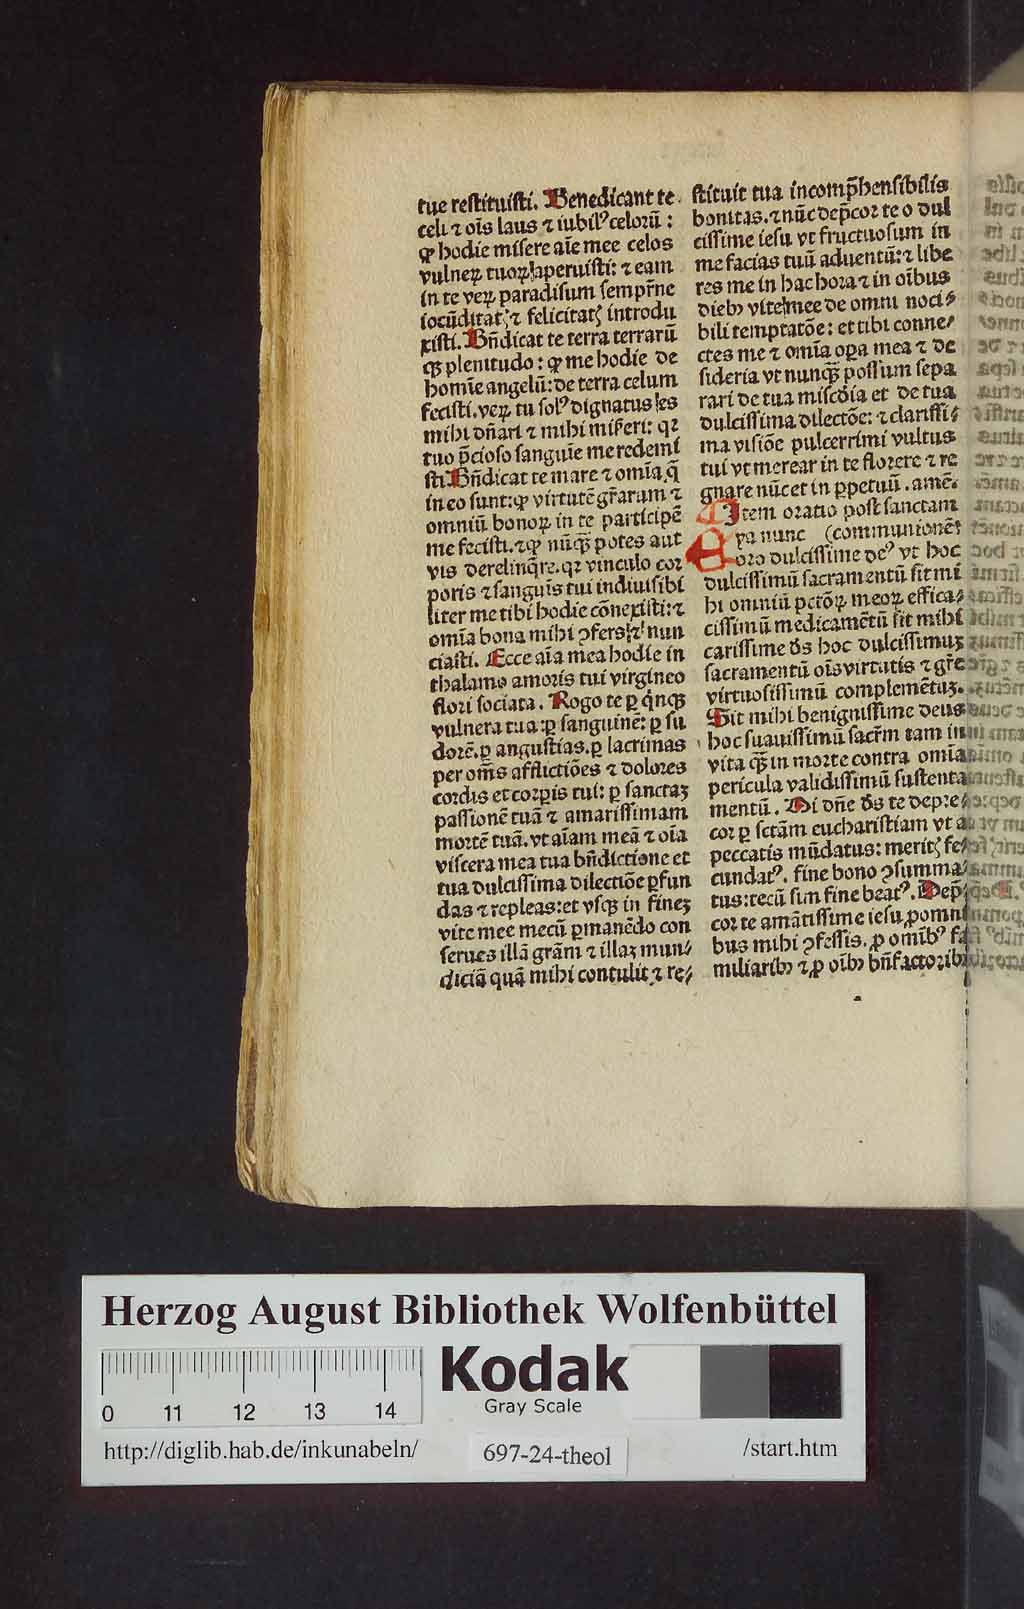 tue restituisti. Benedicant te
celi ⁊ oı̄s laus ⁊ iubilꝰ celorū :
ꝙ hodie misere aı̄e mee celos
vulneꝝ tuoꝝ aperuisti: ⁊ eam
in te veꝝ paradisum sempr̄ne
iocūditatꝭ ⁊ felicitatꝭ introdu
xisti. Bn̄dicat te terra terrarū
qꝫ plenitudo : ꝙ me hodie de
homı̄e angelū: de terra celum
fecisti. veꝝ tu solꝰ dignatus es
mihi dn̄ari ⁊ mihi misẽri: qꝛ
tuo p̄cioso sanguı̄e me redemi
sti. Bn̄dicat te mare ⁊ omı̄a q̄
in eo sunt: ꝙ virtutē gr̄aram ⁊
omniū bonoꝝ in te participē
me fecisti. ⁊ ꝙ nūqꝫ̄ potes aut
vis derelinq̄re. qꝛ vinculo cor
poris ⁊ sanguı̄s tui indiuisibi
liter me tibi hodie cōnexisti: ⁊
omı̄a bona mihi ꝯfers ⁊ nun
ciasti. Ecce aı̄a mea hodie in
thalamo amoris tui virgineo
flori sociata. Rogo te ꝑ qı̄nqꝫ
vulnera tua: ꝑ sanguinē: ꝑ su
dorē. ꝑ angustias. ꝑ lacrimas
per om̄s afflictiōes ⁊ dolores
cordis et corꝑis tui: ꝑ sanctaꝫ
passionē tuā ⁊ amarissimam
mortē tuā. vt aı̄am meā ⁊ oı̄a
viscera mea tua bn̄dictione et
tua dulcissima dilectiōe ꝑfun
das ⁊ repleas: et vsqꝫ in fineꝫ
vite mee mecū ꝑmanēdo con
serues illā grām ⁊ illaꝫ mun⸗
diciā quā mihi contulit ⁊ re⸗
stituit tua incomp̄hensibilis
bonitas. ⁊ nūc dep̄cor te o dul
cissime iesu vt fructuosum in
me facias tuū aduentū: ⁊ libe
res me in hac hora ⁊ in oı̄bus
diebꝫ vite mee de omni noci⸗
bili temptatōe: et tibi conne⸗
ctes me ⁊ omı̄a oꝑa mea ⁊ de
sideria vt nunqꝫ̄ possum sepa
rari de tua mis̄cdia et de tua
dulcissima dilectōe: ⁊ clarissi⸗
ma visiōe pulcerrimi vultus
tui vt merear in te florere ⁊ re
gnare nūc et in ꝑpetuū. amē.
Item oratio post sanctam
Eya nunc (communionē
oro dulcissime deꝰ vt hoc
dulcissimū sacramentū sit mi
hi omniū pctōꝝ meoꝝ effica⸗
cissimū medicamētū sit mihi
carissime d̄s hoc dulcissimuꝫ
sacramentū oı̄s virtutis ⁊ gr̄e
virtuosissimū complemētuꝫ.
Sit mihi benignissime deus
hoc suauissimū sacr̄m tam in
vita qꝫ̄ in morte contra omı̄a
pericula validissimū sustenta
mentū. Mi dn̄e d̄s te depre⸗
cor ꝑ sctām eucharistiam vt a
peccatis mūdatus: meritꝭ fe⸗
cundatꝰ. fine bono ꝯsumma⸗
tus: tecū sim fine beatꝰ. Dep̄
cor te amātissime iesu ꝓ omni
bus mihi ꝯfessis. ꝓ omı̄bꝰ fa
miliaribꝫ ⁊ ꝓ oı̄bꝫ bn̄factoribꝫ
Herzog August Bibliothek Wolfenbüttel
Kodak
Gray Scale
0 11 12 13 14
http://diglib.hab.de/inkunabeln/
697-24-theol
/start.htm